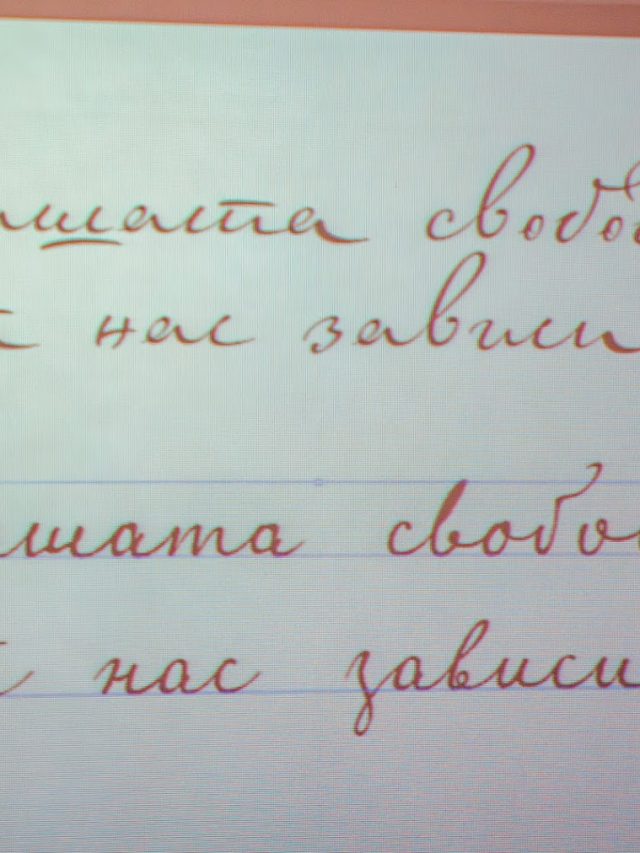 ашата свобо
нас зависи
ашата свобо
нас зависи